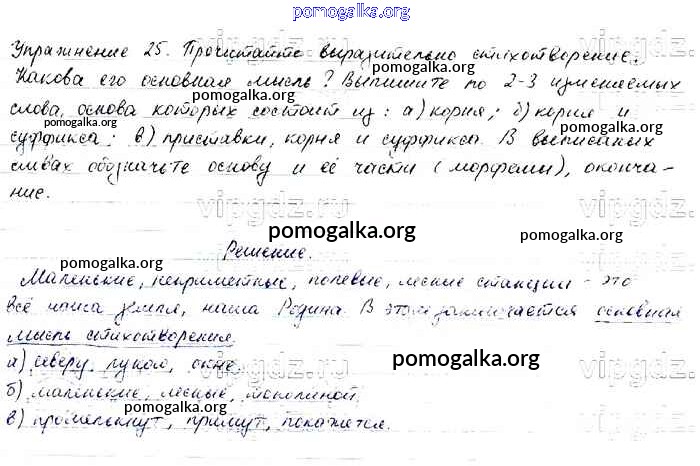 pomogalka.org
Упражнение 25. Прочитайте выразительно стихотворение.
Какова его основная мысль? Выпишите по 2-3 изменяемых
pomogalka.org pomogalka.org
слова, основа которых состоит из: а) корня; б) корня и
pomogalka.org pomogalka.org
суффикса; в) приставки, корня и суффикса. В выписанных
словах обозначьте основу и её части (морфемы), оконча-
pomogalka.org
ние.
vipgdz.ru vipgdz.ru
pomogalka.org pomogalka.org
Решение.
pomogalka.org
Маленькие, неприметные, полевые, лесные станции - это
всё наша земля, наша Родина. В этом заключается основная
мысль стихотворения.
а) северу, лукам, окне.
pomogalka.org
б) маленькие, лесные,
pomogalka.org
в) промелькнут, примут, покажется.
vipgdz.ru vipgdz.ru